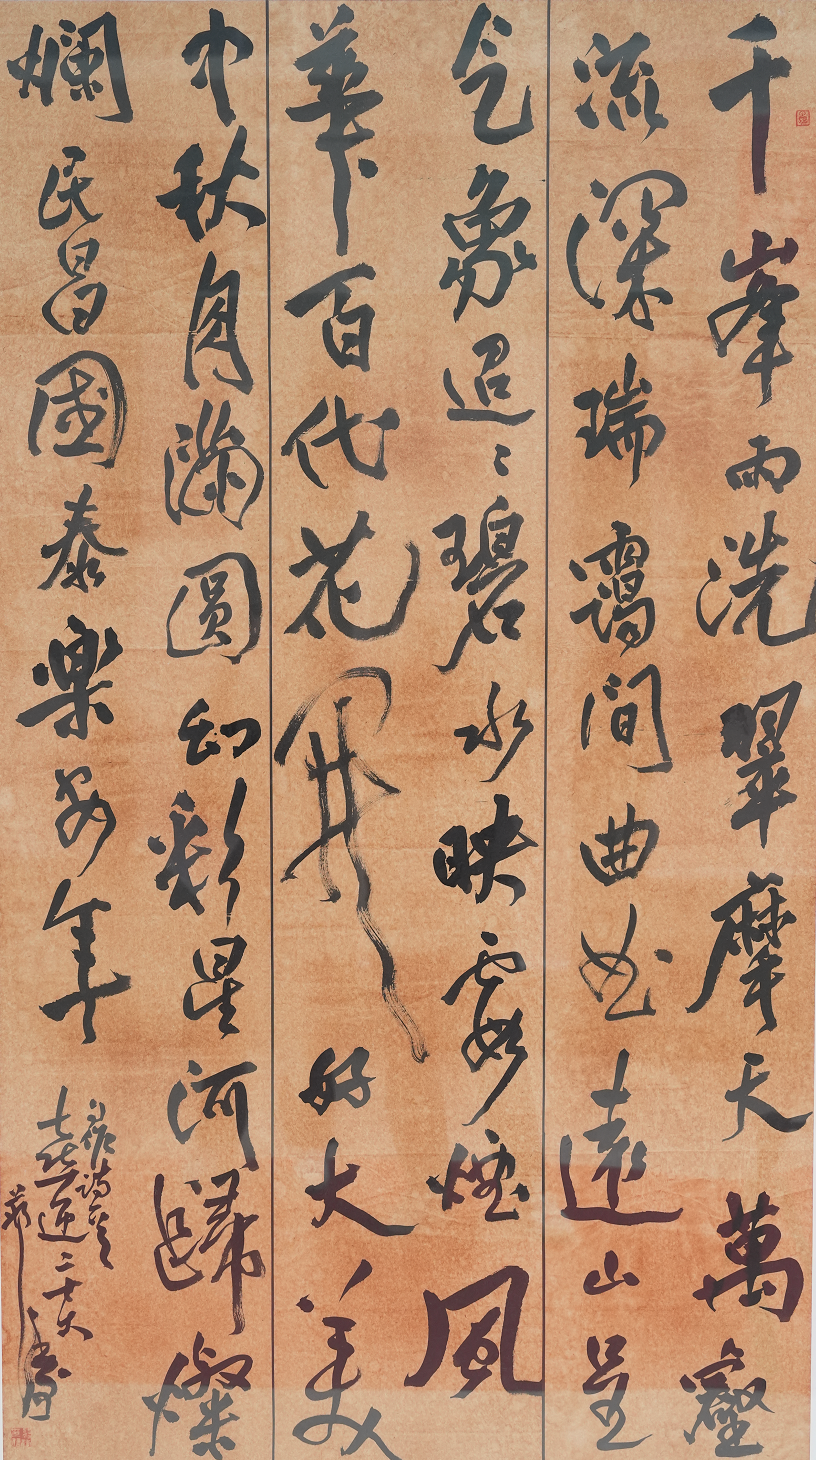 千峯雨洗翠摩天萬壑
流深瑞靄間曲遠山呈
气象迢〻碧水映霞煙風
華百代花開好大美
中秋月滿圓幻彩星河歸燦
爛民昌國泰樂安年